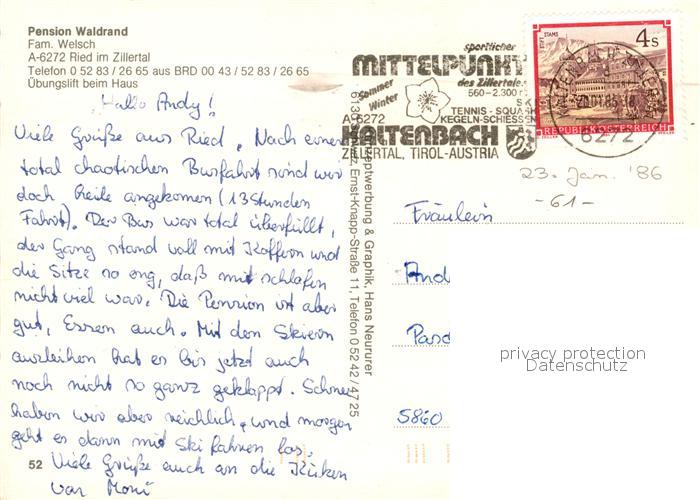 Pension Waldrand
Fam. Welsch
A-6272 Ried im Zillertal
Telefon 0 52 83 / 26 65 aus BRD 00 43 / 52 83 / 26 65
Übungslift beim Haus
Hallo Andy!
Viele Grüße aus Ried. Nach einer
total chaotischen Busfahrt sind wir
doch heile angekommen (13 Stunden
Fahrt). Der Bus war total überfüllt,
der Gang stand voll mit Koffern und
die Sitze so eng, daß mit schlafen
nicht viel war. Die Pension ist aber
gut, Essen auch. Mit den Skiern
ausleihen hat es bis jetzt auch
noch nicht so ganz geklappt. Schnee
haben wir aber reichlich, und morgen
geht es dann mit Ski fahren los.
52 Viele Grüße auch an die Küken
von Moni
Werbung & Graphik, Hans Neururer
Ernst-Knapp-Straße 11, Telefon 0 52 42 / 47 25
sportlicher
MITTELPUNKT
des Zillertales
Sommer
Winter
560-2.300
TENNIS - SQUASH
KEGELN-SCHIESSEN
A-6272
KALTENBACH
ZILLERTAL, TIROL-AUSTRIA
STIFT STAMS
4 S
REPUBLIK ÖSTERREICH
6272
23. Jan. '86
-61-
Fräulein
And
Pasc
5860
privacy protection
Datenschutz